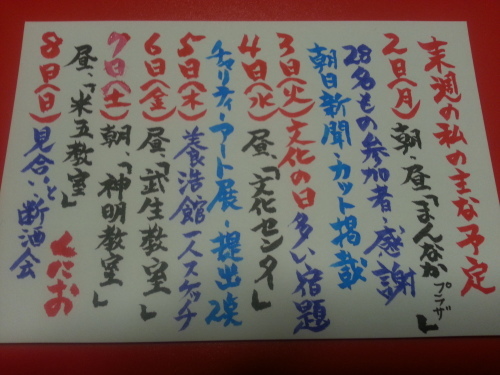 来週の私の主な予定
2日(月)朝・昼「まんなかプラザ」
28名もの参加者・感謝
朝日新聞・カット掲載
3日(火)文化の日多い宿題
4日(水)昼、「文化センター」
チャリティーアート展・提出談
5日(木)養浩館一人スケッチ
6日(金)昼、「武生教室」
7日(土)朝、「神明教室」
昼、「米五教室」
8日(日)見合いと断酒会
くにお